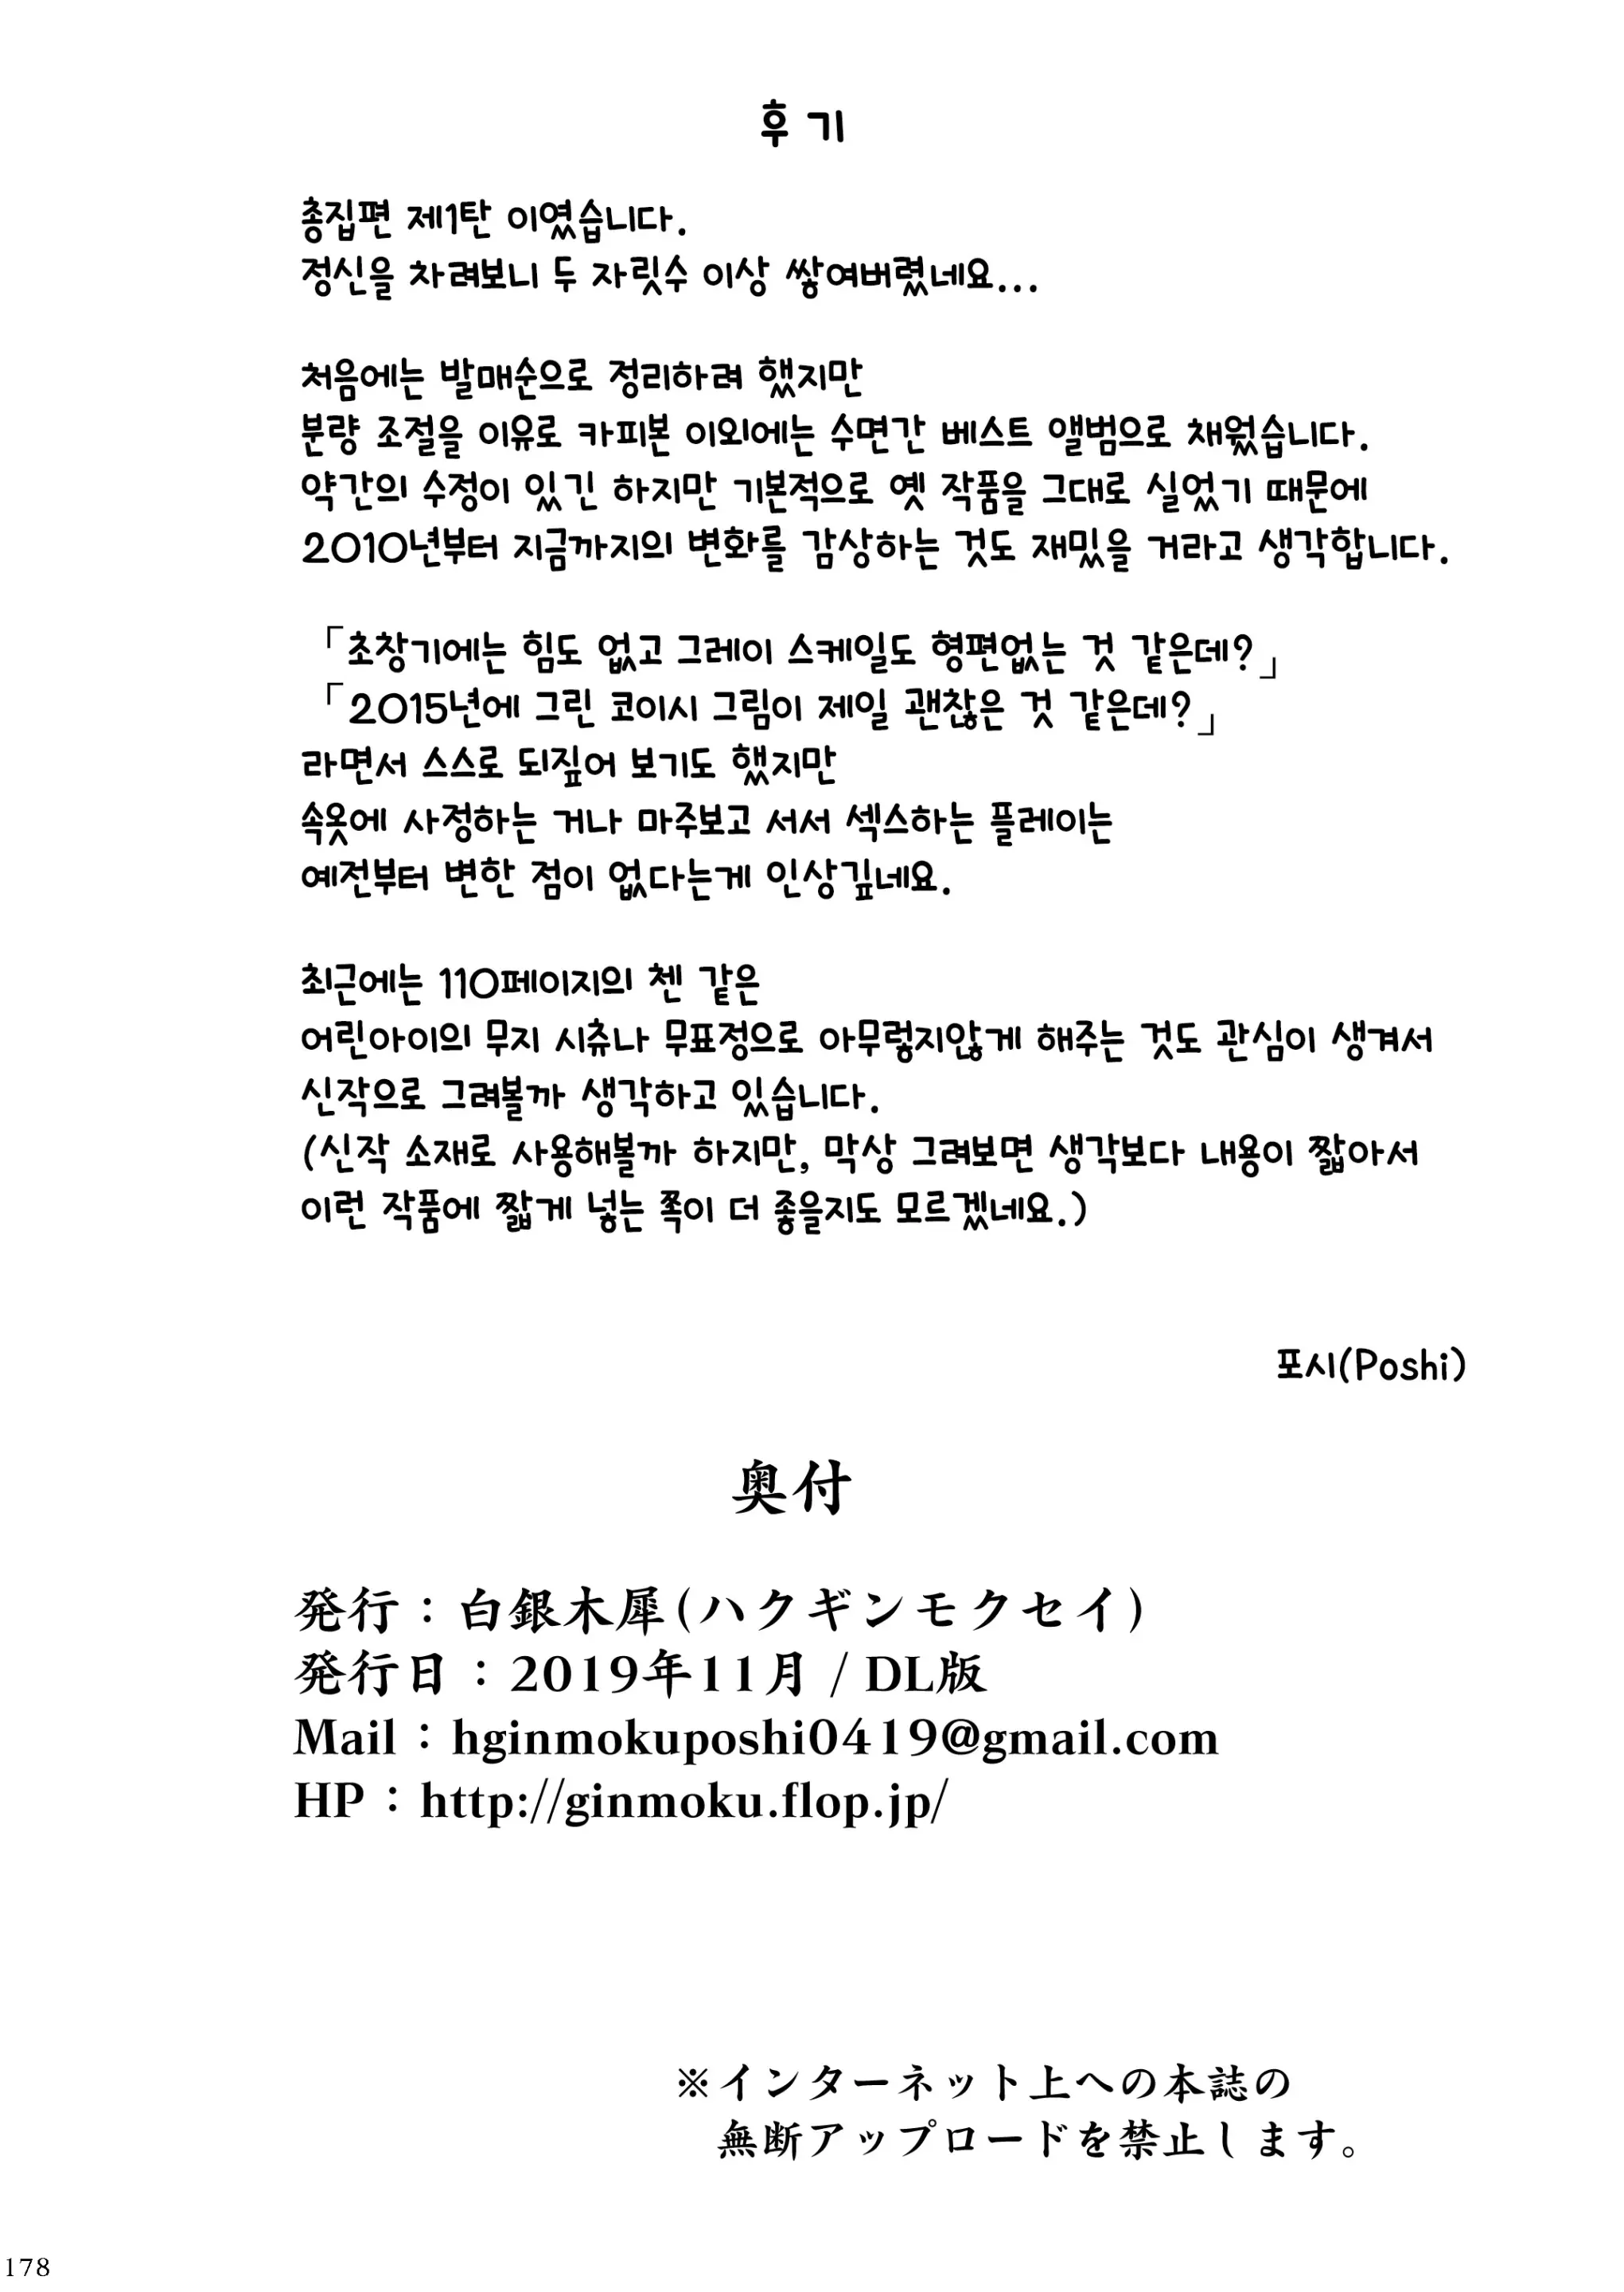 후기
총집편 제1탄 이였습니다.
정신을 차려보니 두 자릿수 이상 쌓여버렸네요...
처음에는 발매순으로 정리하려 했지만
분량 조절을 이유로 카피본 이외에는 수면간 베스트 앨범으로 채웠습니다.
약간의 수정이 있긴 하지만 기본적으로 옛 작품을 그대로 실었기 때문에
2010년부터 지금까지의 변화를 감상하는 것도 재밌을 거라고 생각합니다.
「초창기에는 힘도 없고 그레이 스케일도 형편없는 것 같은데?」
「2015년에 그린 코이시 그림이 제일 괜찮은 것 같은데?」
라면서 스스로 되짚어 보기도 했지만
속옷에 사정하는 거나 마주보고 서서 섹스하는 플레이는
예전부터 변한 점이 없다는게 인상깊네요.
최근에는 110페이지의 첸 같은
어린아이의 무지 시츄나 무표정으로 아무렇지않게 해주는 것도 관심이 생겨서
신작으로 그려볼까 생각하고 있습니다.
(신작 소재로 사용해볼까 하지만, 막상 그려보면 생각보다 내용이 짧아서
이런 작품에 짧게 넣는 쪽이 더 좋을지도 모르겠네요.)
포시(Poshi)
奥付
発行：白銀木犀(ハクギンモクセイ)
発行日：2019年11月 / DL版
Mail：hginmokuposhi0419@gmail.com
HP：http://ginmoku.flop.jp/
※インターネット上への本誌の
無断アップロードを禁止します。
178